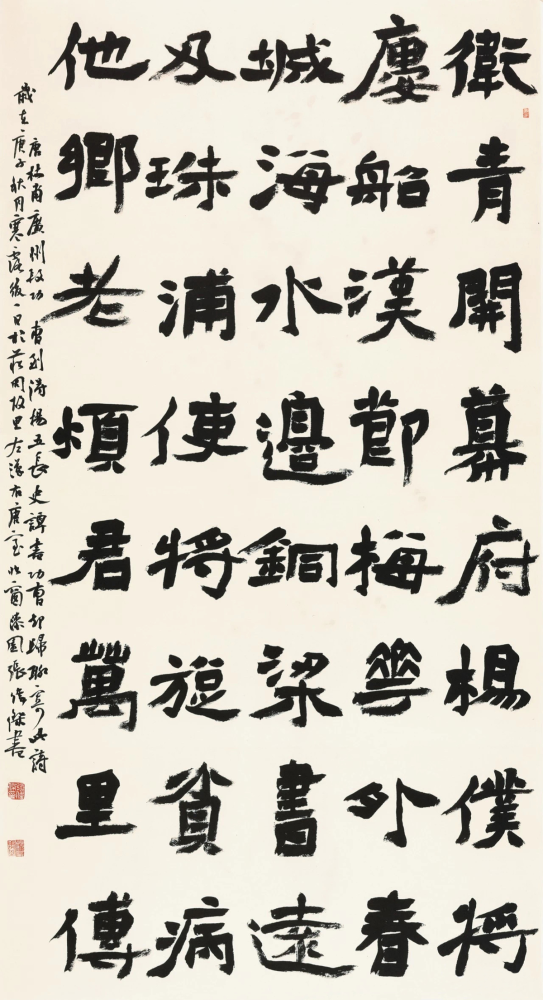 衛青開幕府楊僕將
廔船漢節梅華外春
城海水邊銅梁書遠
及珠浦使將旋貧病
他鄉老煩君萬里傳
唐杜甫廣州段功曹到得楊五長史譚書功曹卻歸聊寄此詩
歲在庚子秋月寒露後一日於莊周故里左漢右唐室北窗漆園張傑書